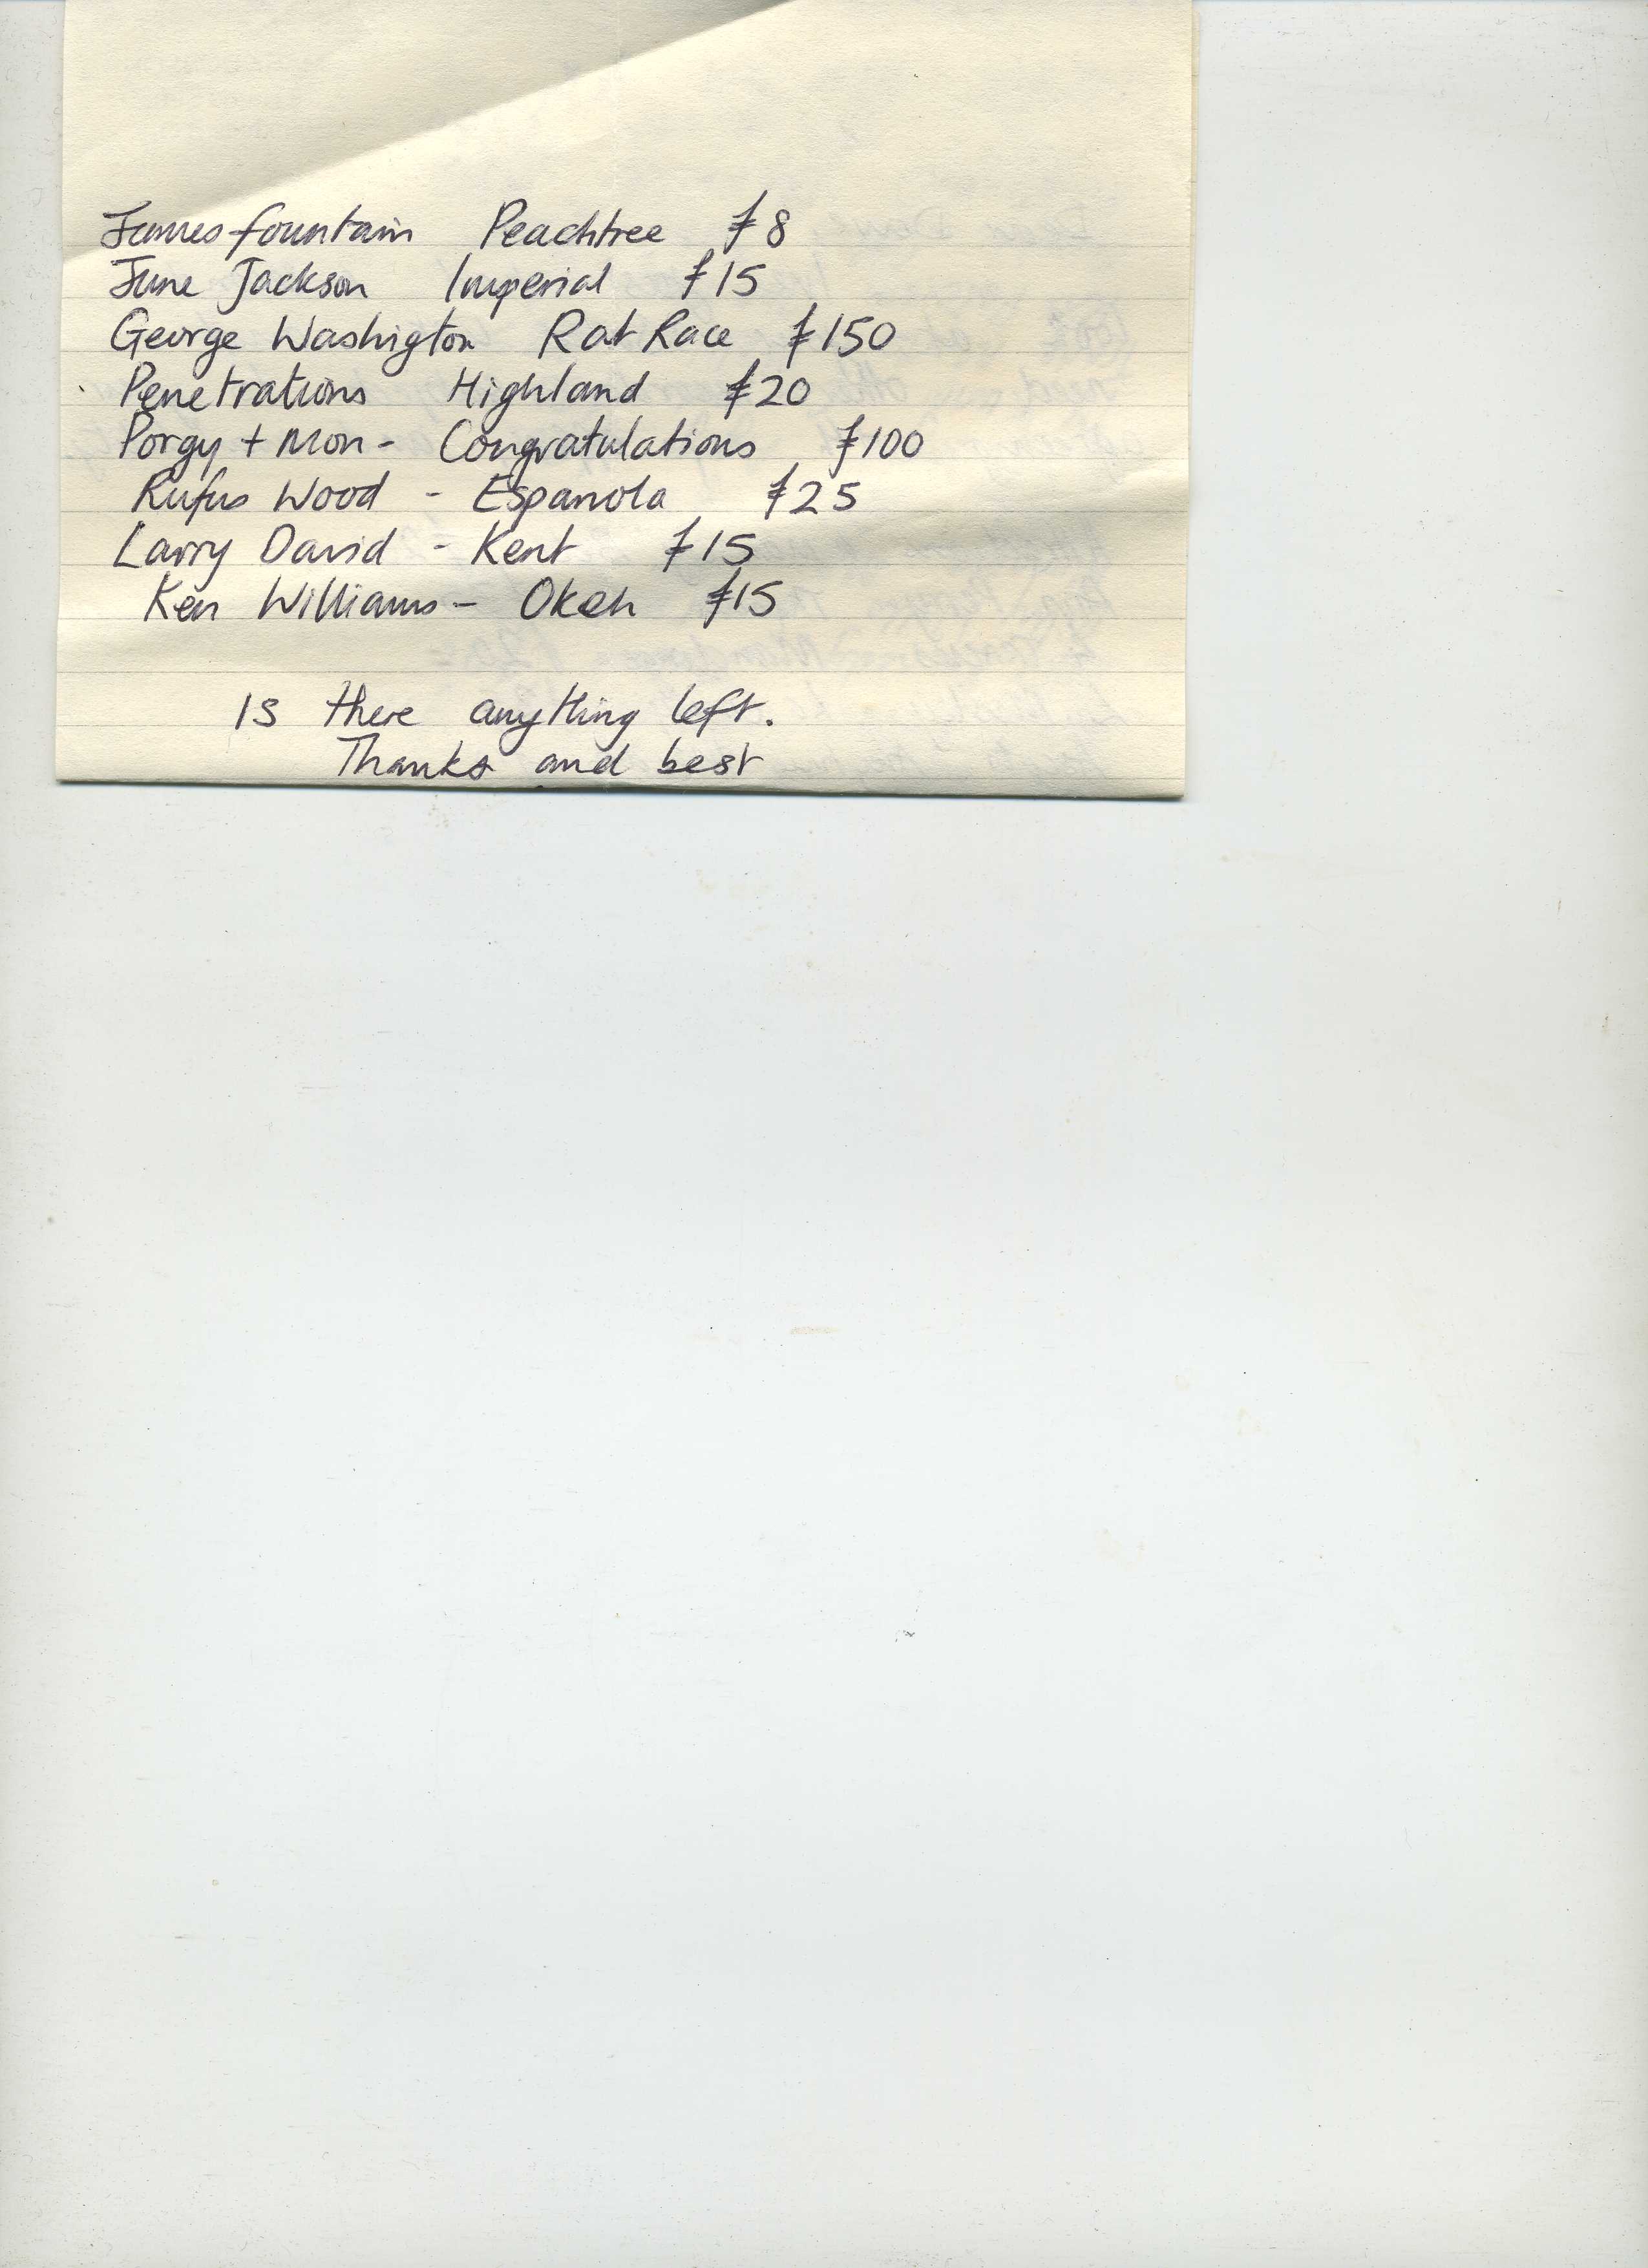 James Fountain Peachtree £8
June Jackson Imperial £15
George Washington Rat Race £150
Penetrations Highland £20
Porgy + Mon - Congratulations £100
Rufus Wood - Espanola £25
Larry David - Kent £15
Ken Williams - Okeh £15
Is there anything left.
Thanks and best